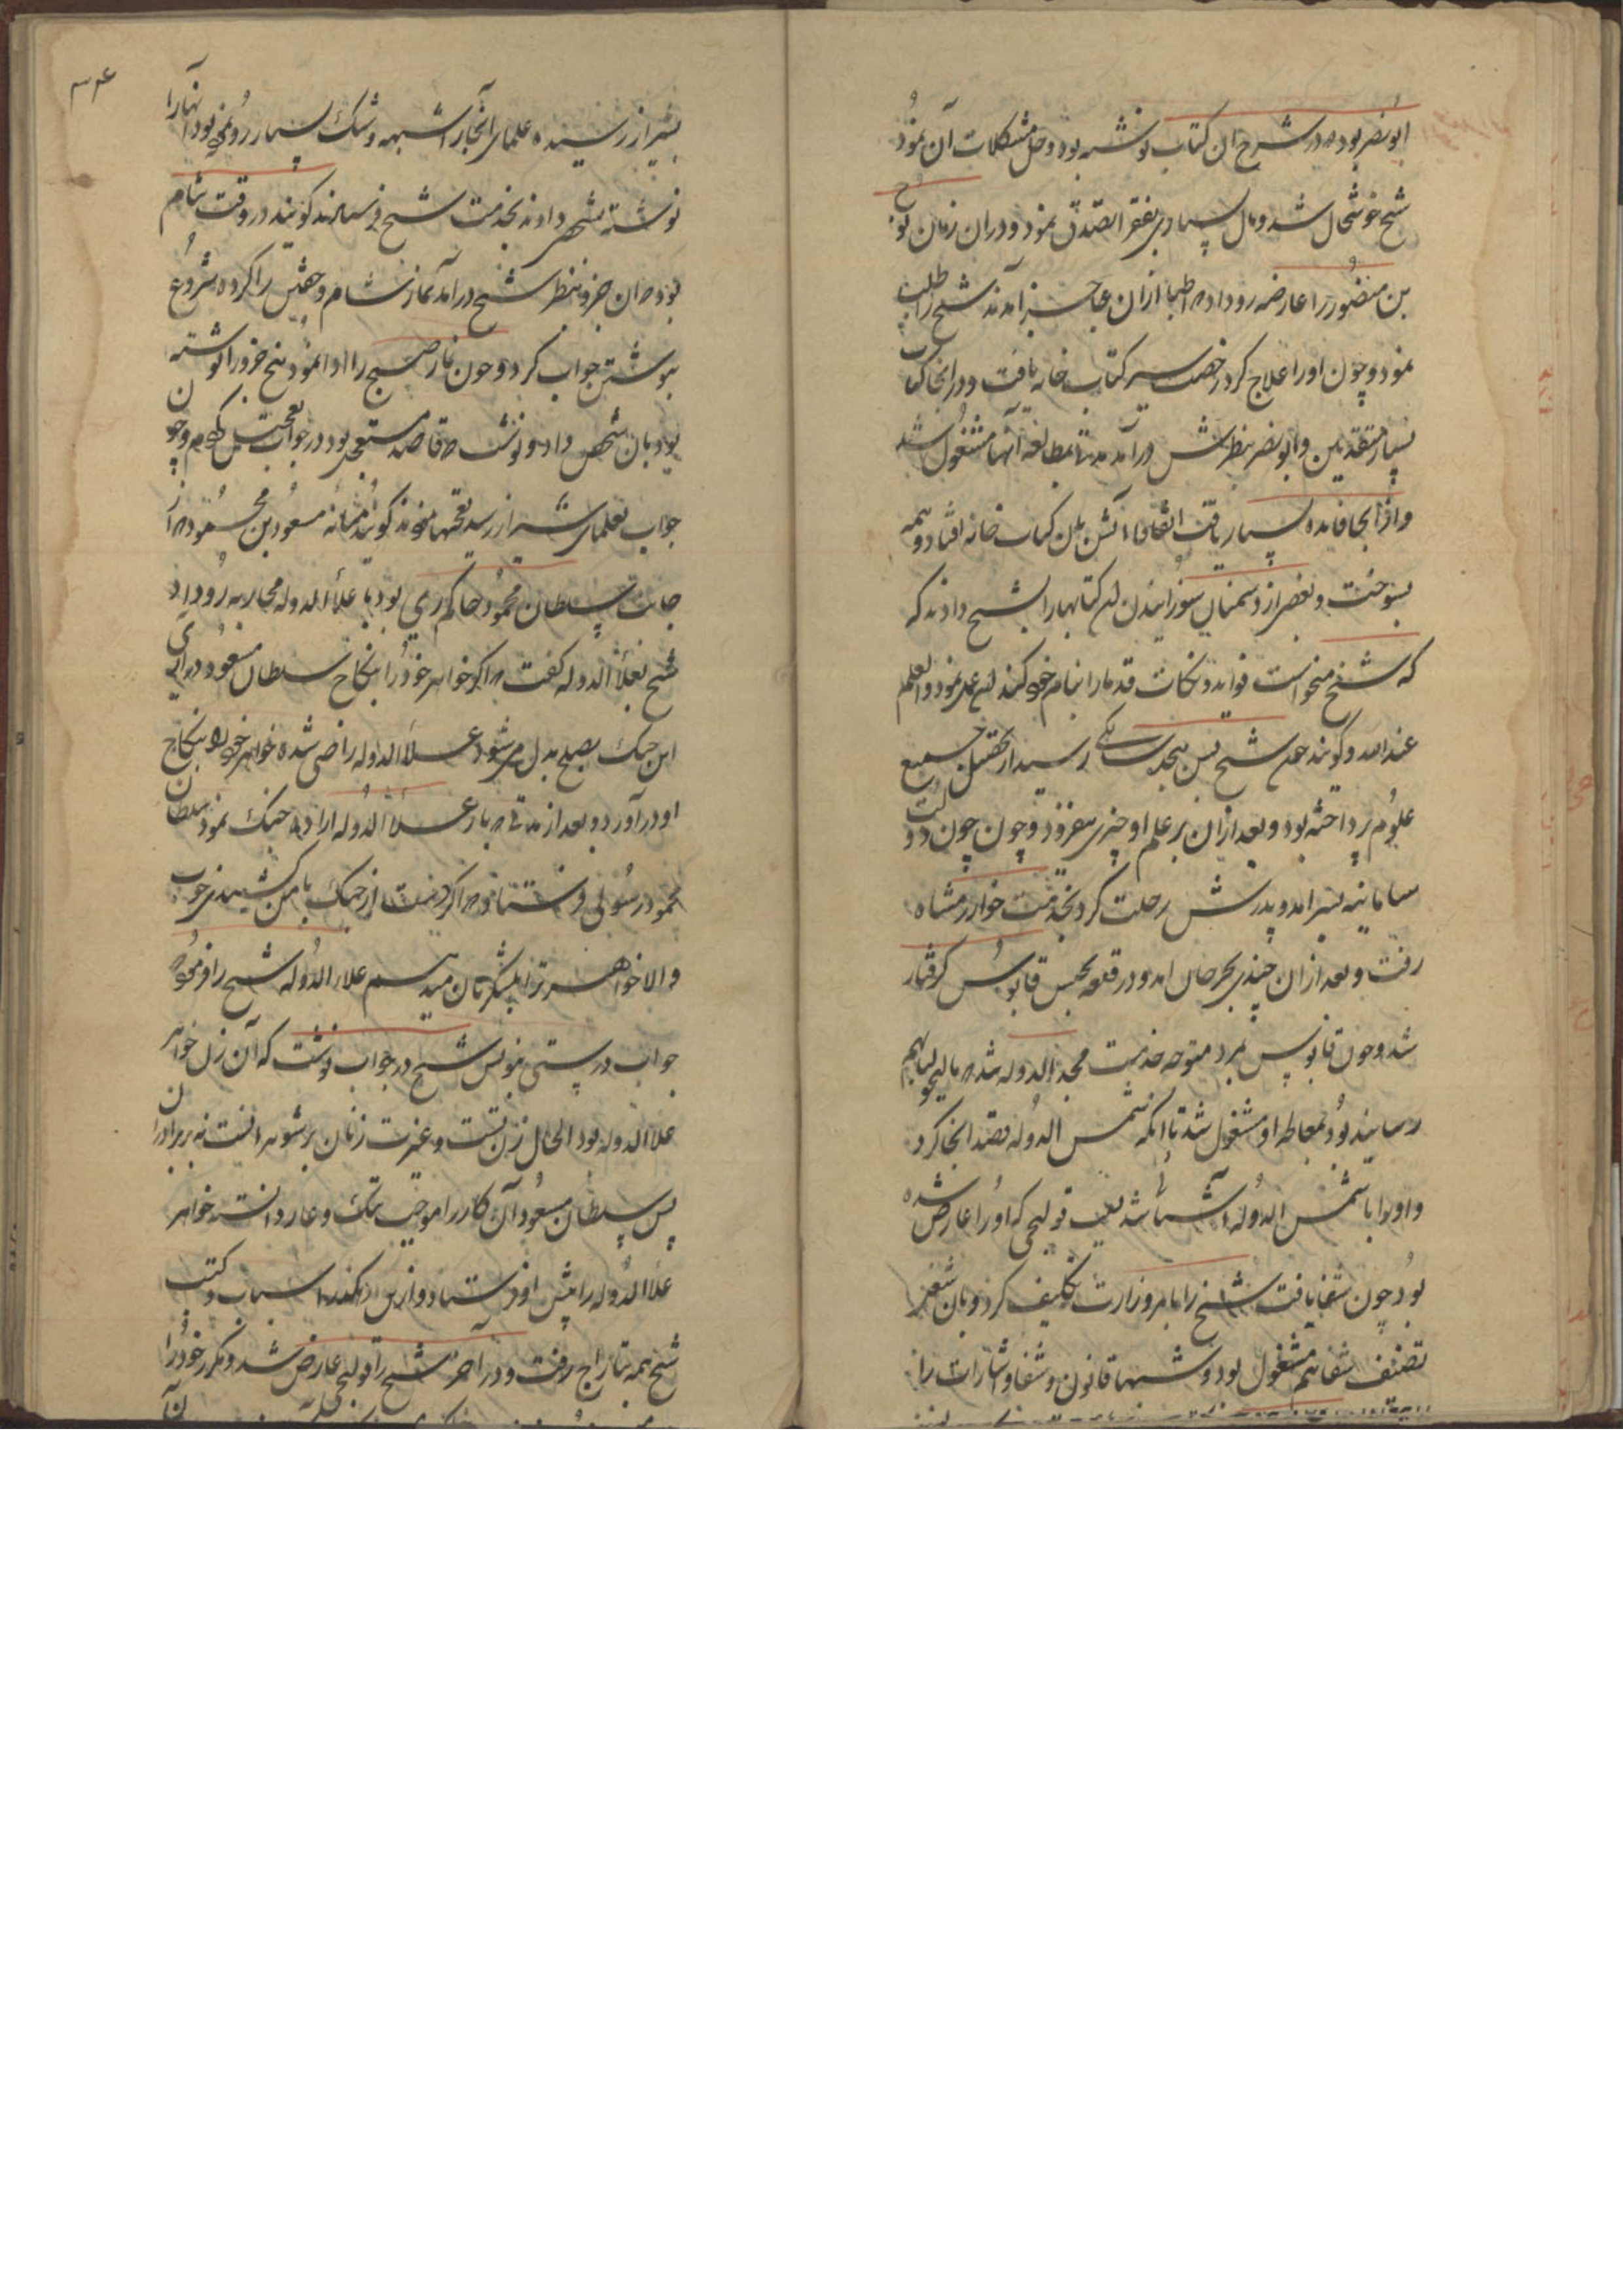 ابونصر بود که در شرح ان کتاب نوشته بود و حل مشکلات آن نمود
شیخ خوشحال شد و مال بسیاری بفقرا تصدق نمود و دران زمان نوح
بن منصور را عارضه رو داد که اطبا ازان عاجز آمدند شیخ را طلب
نمود و چون او را علاج کرد رخصت سیر کتاب خانه یافت و در انجا کتاب
بسیار متقدمین و ابونصر بنظرش درآمد مدتها بمطالعه آنها مشغول شد
و از انجا فایده بسیار یافت اتفاقا آتش بان کتاب خانه افتاد و همه
بسوخت و بعضی از دشمنان سوزانیدن ان کتابها را بشیخ دادند که
که شیخ میخواست فواید و نکات قدما را بنام خود کند این عمل نمود والعلم
عند الله و گویند چون شیخ بسن هجده سالگی رسید از تحصیل جمیع
علوم پرداخته بود و بعد ازان بر علم او چیزی نیفزود و چون چون دولت
سامانیه بسر امد و پدرش رحلت کرد بخدمت خوارزمشاه
رفت و بعد ازان چندی بجرجان امد و در قلعه بحبس قابوس گرفتار
شد و چون قابوس بمرد متوجه خدمت مجد الدوله شد که مالیخولیا بهم
رسانیده بود بمعالجه او مشغول شد تا انکه شمس الدوله قصد انجا کرد
و او را با شمس الدوله آشنا شد بسبب قولنجی که او را عارض شده
بود چون شفا یافت شیخ را بامر وزارت تکلیف کرد و بان شغل
تصنیف شفا هم مشغول بود و شبها قانون و شفا و اشارات را
۳۴
بشیراز رسیده علمای آنجا را شبهه و شک بسیار رو نموده بود آنها را
نوشته بشخصی دادند بخدمت شیخ فرستادند گویند در وقت شام
بود که ان جزو بنظر شیخ درآمد نماز شام و خفتن را کرده شروع
بنوشتن جواب کرد و چون نماز صبح را ادا نمود پنج جزو را نوشته
بود بان شخص داد و نوشت که قاصد مستعجل بود در جواب تعجیل کردم و چون
جواب بعلمای شیراز رسید تعجبها نمودند گویند میانه مسعود بن محمود که از
جانب سلطان محمود حاکم ری بود با علاء الدوله محاربه رو داد
شیخ بعلاء الدوله گفت که اگر خواهر خود را بنکاح سلطان مسعود درآری
این جنک بصلح بدل می شود علاء الدوله راضی شده خواهر خود را بنکاح
او درآورد و بعد از مدتی که باز علاء الدوله اراده جنک نمود سلطان
محمود رسولی فرستاد که اگر دست از جنک با من کشیدی خوب
و الا خواهر ترا بلشکریان میدهم علاء الدوله شیخ را فرمود که
جواب درستی بنویس شیخ در جواب نوشت که آن زن خواهر
علا الدوله بود الحال زن تست و غیرت زنان بر شوهرانست نه بر برادران
پس سلطان مسعود آن کار را موجب ننک و عار دانسته خواهر
علا الدوله را پیش او فرستاد و ازین رهکذر اسباب و کتب
شیخ همه بتاراج رفت و در آخر شیخ را قولنج عارض شد و مکرر خود را